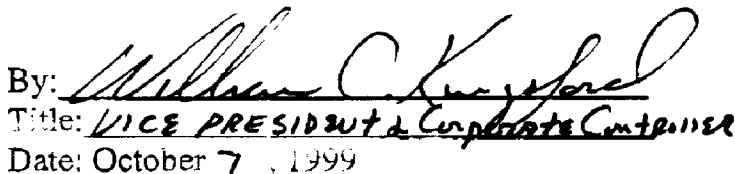 By: William C. Kungsford
Title: VICE PRESIDENT & Corporate Controller
Date: October 7, 1999